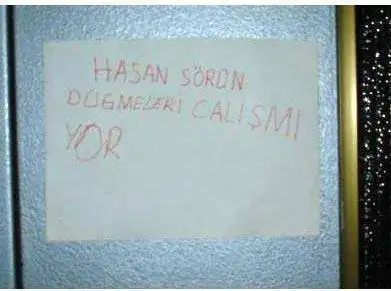 HASAN SÖRÜN
DÜĞMELERİ ÇALIŞMI
YOR